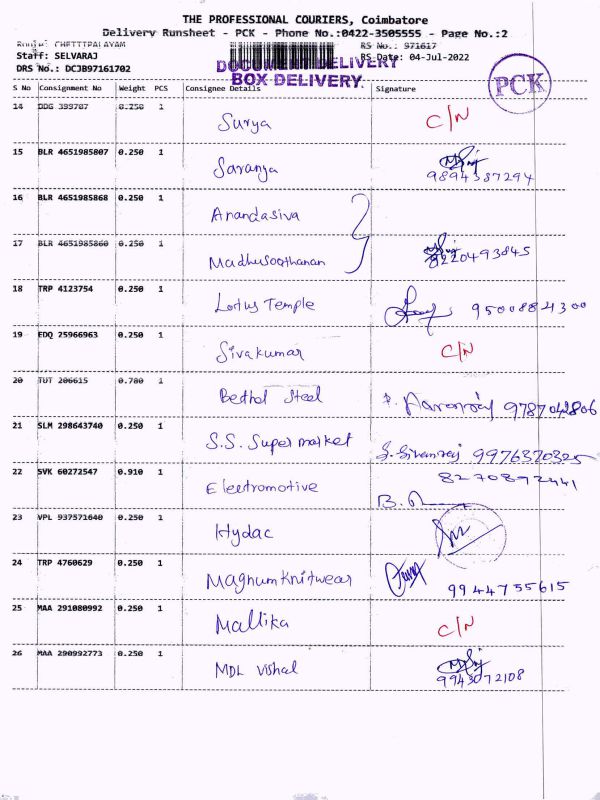 THE PROFESSIONAL COURIERS, Coimbatore
Delivery Runsheet - PCK - Phone No.:0422-3505555 - Page No.:2
Route: CHETTTPALAYAM RS No.: 971617
Staff: SELVARAJ RS Date: 04-Jul-2022
DOCUMENT DELIVERY
DRS No.: DCJB97161702
BOX DELIVERY.
PCK
S No Consignment No Weight PCS Consignee Details Signature
14 DDG 399707 0.250 1 Surya C/N
15 BLR 4651985807 0.250 1 Saranya
9894387294
16 BLR 4651985868 0.250 1 Anandasiva
17 BLR 4651985860 0.250 1 Madhusoothanan 8220493845
18 TRP 4123754 0.250 1 Lotus Temple 9500884300
19 EDQ 25966963 0.250 1 Sivakumar C/N
20 TUT 206615 0.700 1 Bethal Steel 9787042806
21 SLM 298643740 0.250 1 S.S. Super market S. Sivanraj 9976370325
22 SVK 60272547 0.910 1 Electromotive 8270892441
23 VPL 937571640 0.250 1 Hydac
24 TRP 4760629 0.250 1 Magnum Knitwear 9944755615
25 MAA 291080992 0.250 1 Mallika C/N
26 MAA 290992773 0.250 1 MDL Vishal
9943072108